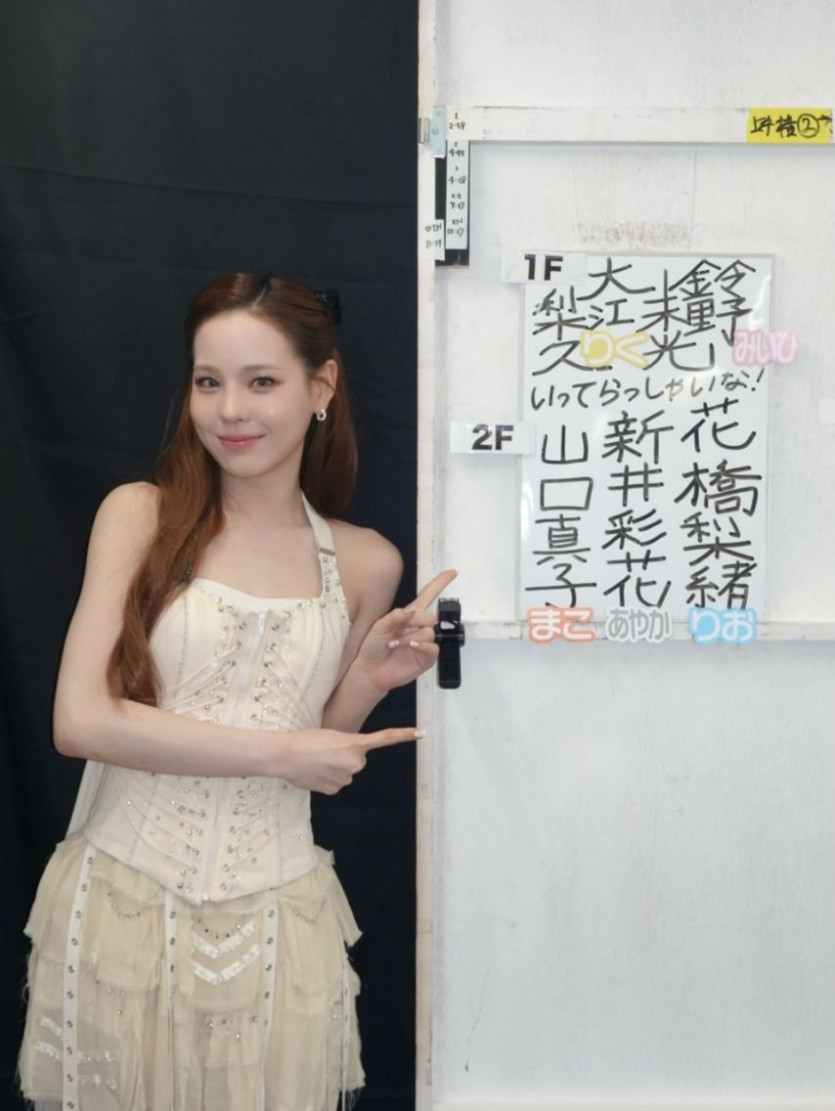 1F
鈴野
未光
みいひ
大江
梨久
りく
いってらっしゃいな!
2F
花橋梨緒
新井彩花
山口真子
まこ
あやか
りお